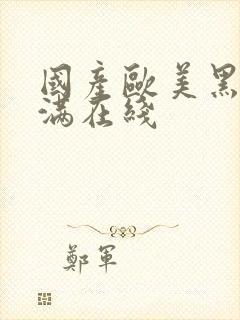 國產歐美黑
滿在綫
鄭軍